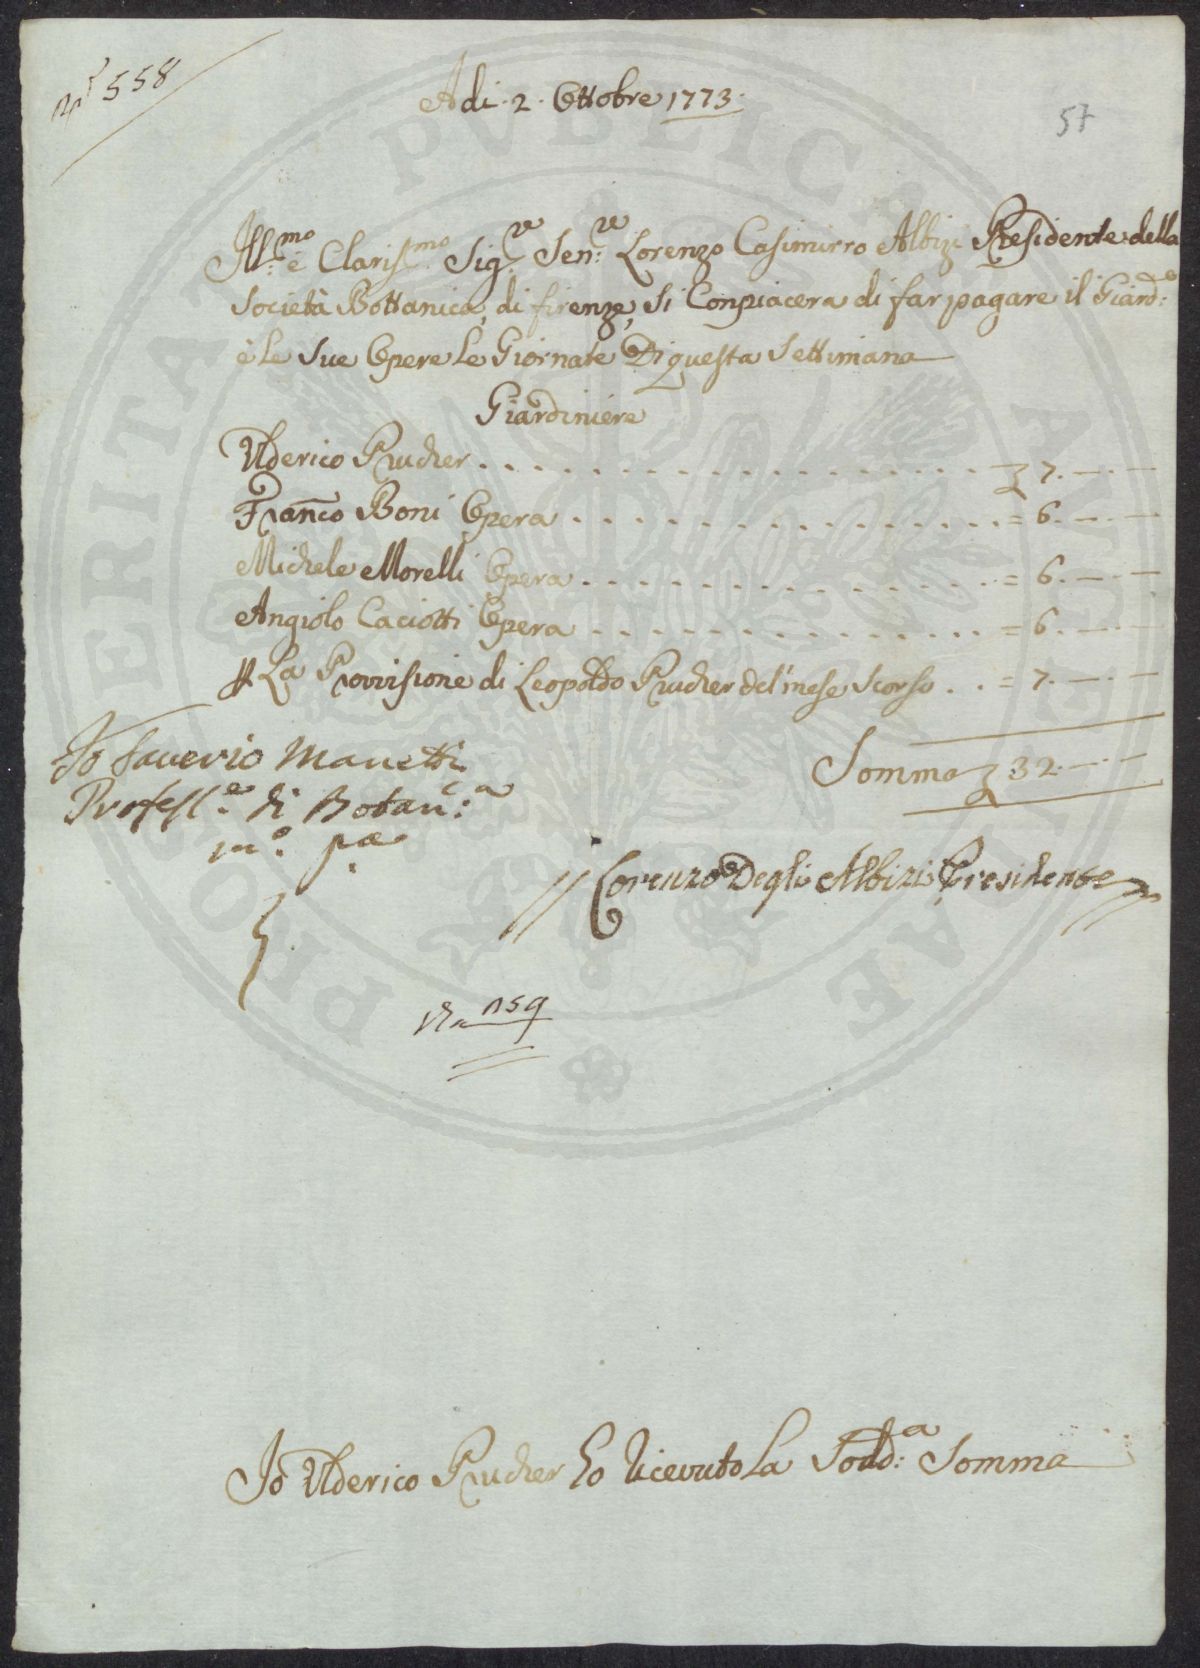 N.° 558
Adi. 2. Ottobre 1773.
57
Ill:mo è Claris:mo Sig:re Sen:re Lorenzo Casimirro Albizi Presidente della
Società Bottanica, di firenze, Si Conpiacera di far pagare il Giard:e
è le Sue Opere le Giornate Di questa Settimana
Giardiniere
Ulderico Prucher . . . . . . . . . . . . . . . . . . . . £ 7. — . —
Franco Boni Opera . . . . . . . . . . . . . . . . = 6. — . —
Michele Morelli Opera . . . . . . . . . . . . . . . = 6. — . —
Angiolo Caciotti Opera . . . . . . . . . . . . . . . = 6. — . —
P La Provvisione di Leopoldo Prucher del' mese Scorso . . = 7. — . —
Somma £ 32. — . —
Io Saverio Manetti
Profess:e di Botan:ca
m.o p.a
Lorenzo Degli Albizi Presidente
159
Io Ulderico Prucher ho Ricevuto La Sudd:a Somma
PRO PUBLICA